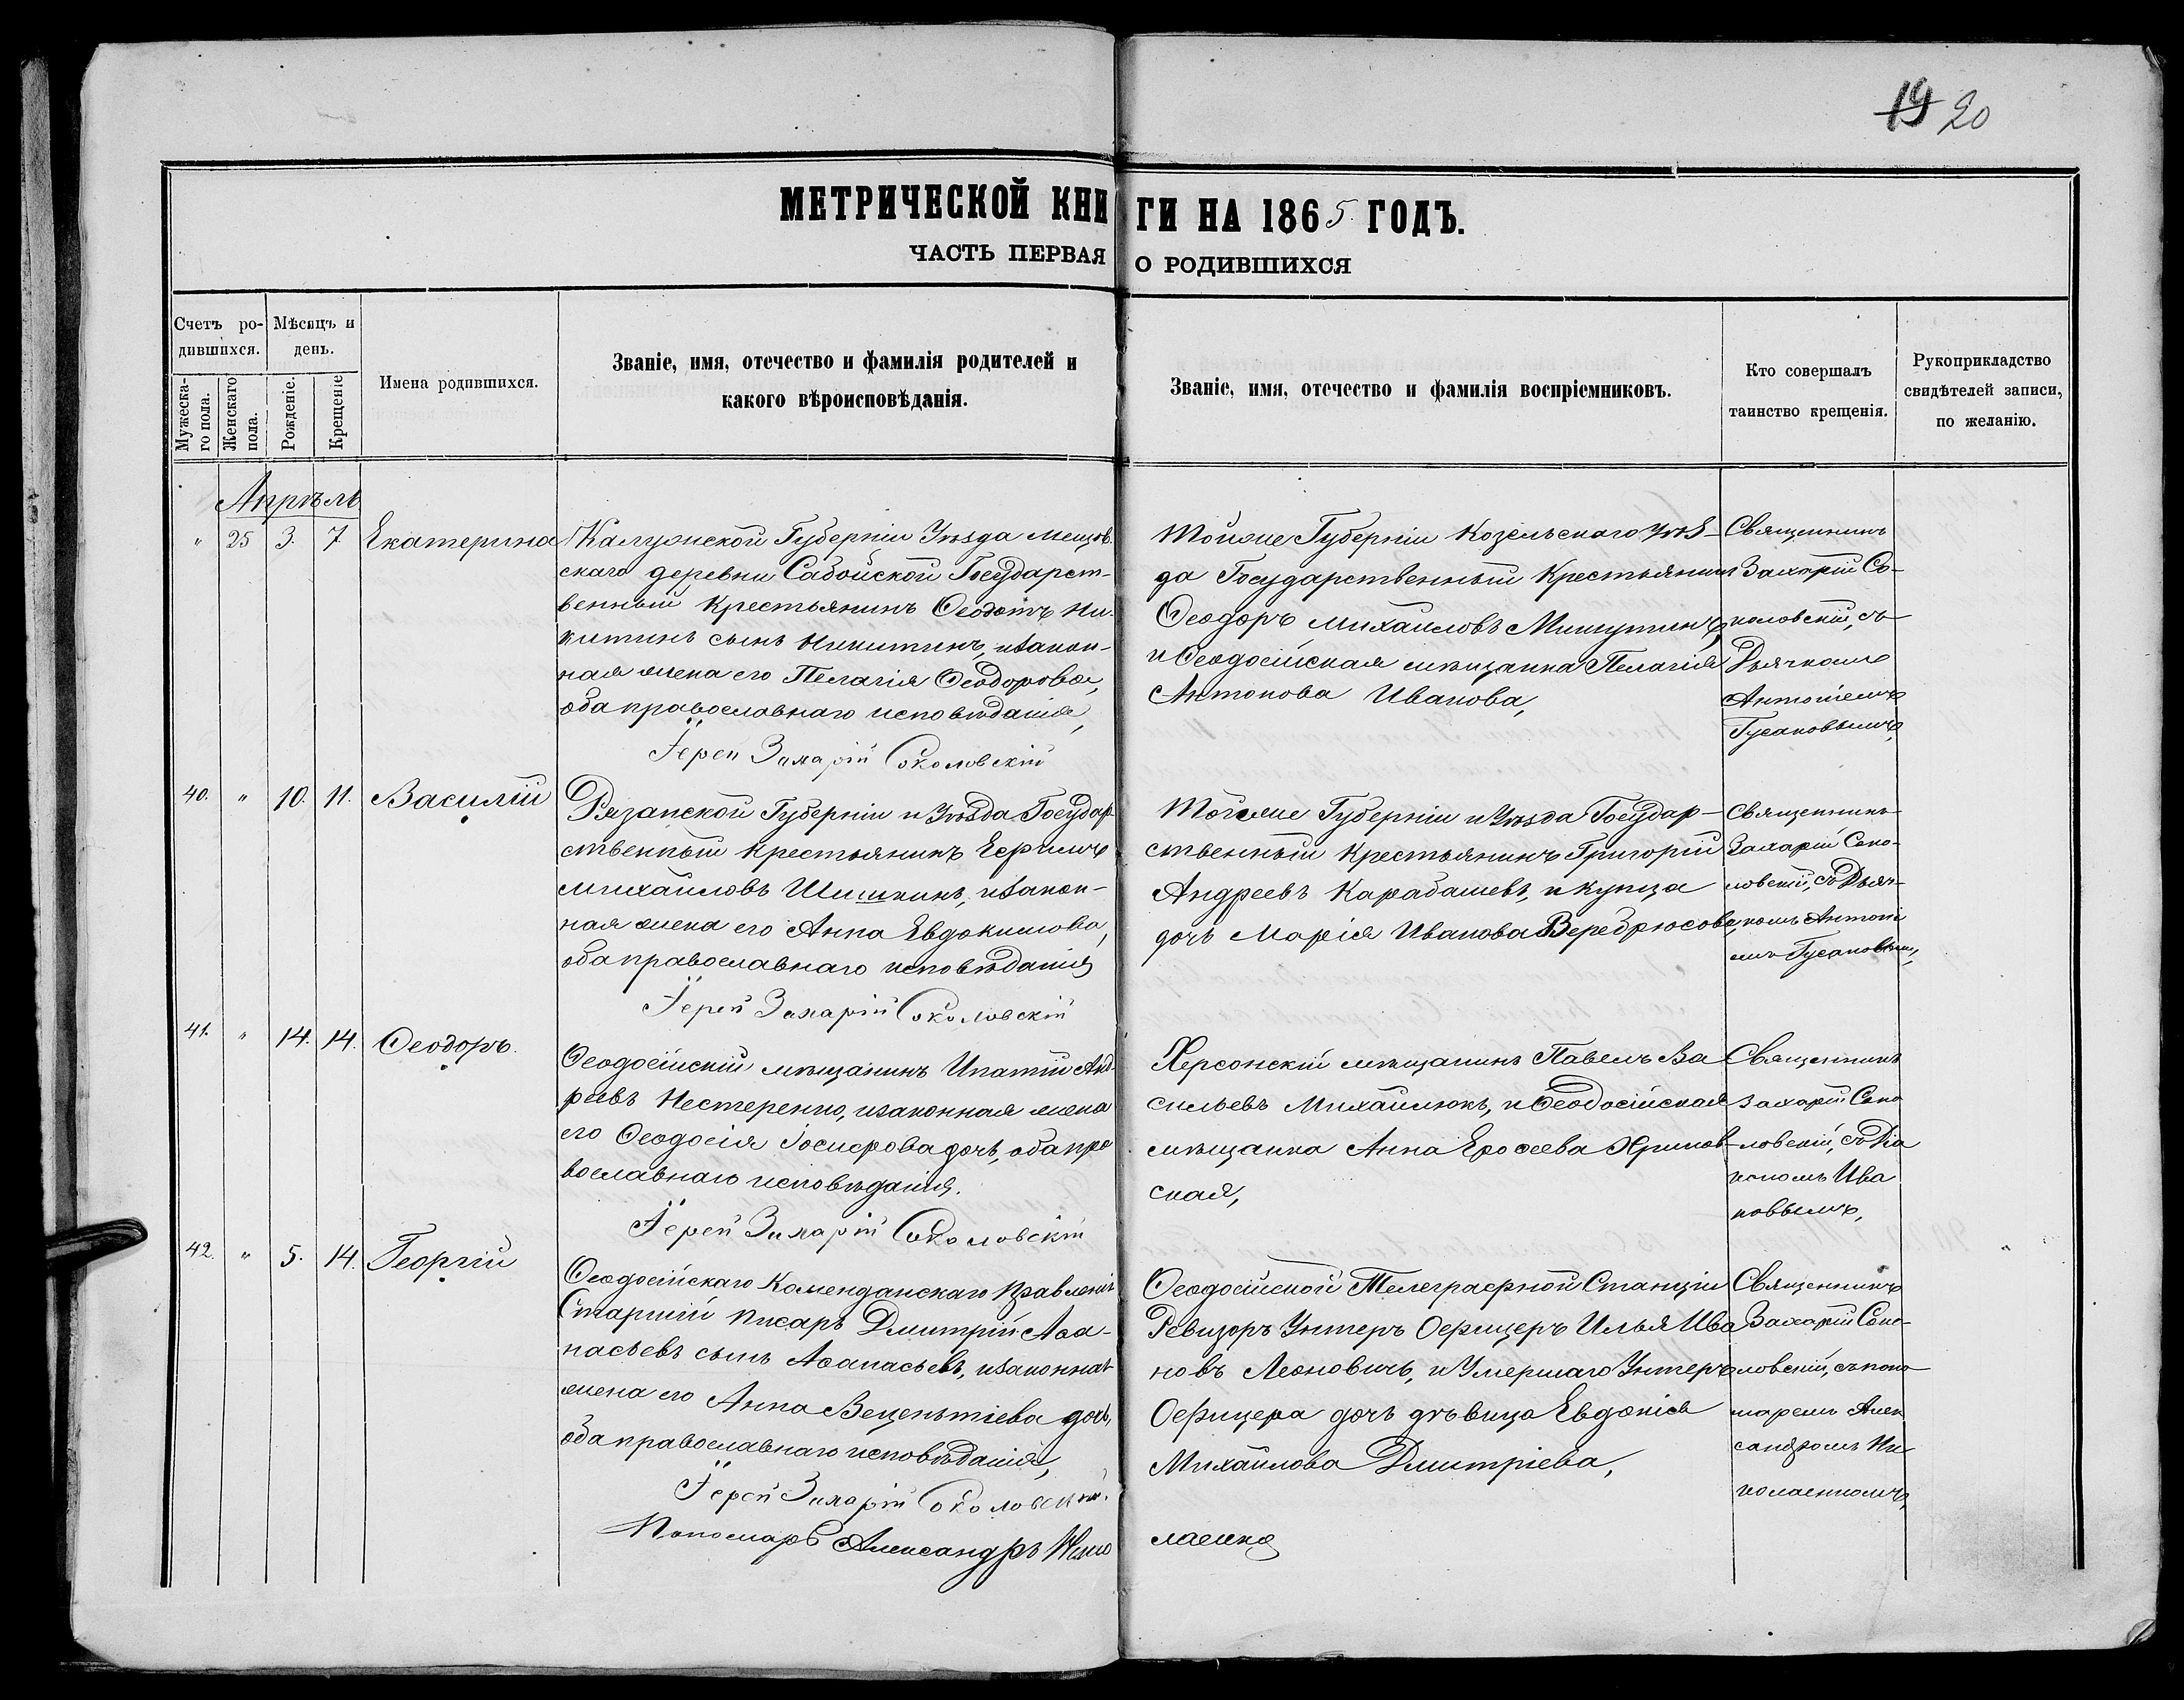 19 20
МЕТРИЧЕСКОЙ КНИГИ НА 1865 ГОДЪ.
ЧАСТЬ ПЕРВАЯ О РОДИВШИХСЯ
Счетъ ро-
дившихся.
Мужеска-
го пола.
Женскаго
пола.
Мѣсяцъ и
день.
Рожденіе.
Крещеніе
Имена родившихся.
Званіе, имя, отечество и фамилія родителей и
какого вѣроисповѣданія.
Званіе, имя, отечество и фамилія воспріемниковъ.
Кто совершалъ
таинство крещенія.
Рукоприкладство
свидѣтелей записи,
по желанію.
Апрѣль
" 25 3. 7. Екатерина
Калужской Губерніи Уѣзда Мещов-
скаго деревни Сабойской Государст-
венный крестьянинъ Ѳеодотъ Ни-
китинъ сынъ Никитинъ, и закон-
ная жена его Пелагія Ѳеодорова,
оба православнаго исповѣданія,
Іерей Захарій Соколовскій
Тойже Губерніи Козельскаго Уѣз-
да Государственный Крестьянинъ
Ѳеодоръ Михаиловъ Мишутинъ,
и Ѳеодосійская мѣщанка Пелагія
Антонова Иванова,
Священникъ
Захарій Со-
коловскій, съ
Дьячкомъ
Антоніемъ
Гусаковымъ,
40. " 10. 11. Василій
Рязанской Губерніи и Уѣзда Государ-
ственный крестьянинъ Ефимъ
Михаиловъ Шишкинъ, и закон-
ная жена его Анна Евдокимова,
оба православнаго исповѣданія
Іерей Захарій Соколовскій
Тойже Губерніи и Уѣзда Государ-
ственный крестьянинъ Григорій
Андреевъ Карабашевъ, и купца
дочь Марія Иванова Веребрюсова,
Священникъ
Захарій Соко-
ловскій, съ Дьяч-
комъ Антоні
емъ Гусаковымъ,
41. " 14. 14. Ѳеодоръ.
Ѳеодосійскій мѣщанинъ Ипатій Анд-
реевъ Нестеренко, и законная жена
его Ѳеодосія Іосифова дочь, оба пра
вославнаго исповѣданія.
Іерей Захарій Соколовскій
Херсонскій мѣщанинъ Павелъ Ва
сильевъ Михайлюкъ, и Ѳеодосійская
мѣщанка Анна Ероѳеева Хринов-
ская,
Священникъ
Захарій Соко
ловскій, съ
Ива
новымъ,
42. " 5. 14. Георгій
Ѳеодосійскаго Коменданскаго Правленія
Старшій писарь Дмитрій Аѳа-
насьевъ сынъ Аѳанасьевъ, и законная
жена его Анна Веценьтіева дочь,
оба православнаго исповѣданія,
Іерей Захарій Соколовскій.
Пономарь Александръ Нико
лаенко
Ѳеодосійской Телеграфной Станціи
Ревизоръ Унтеръ Офицеръ Илья Ива
новъ Леоновичь, и Умершаго Унтеръ
Офицера дочь дѣвица Евдокія
Михайлова Дмитріева,
Священникъ
Захарій Соко-
ловскій, съ поно
маремъ Алек
сандромъ Ни-
колаенкомъ,